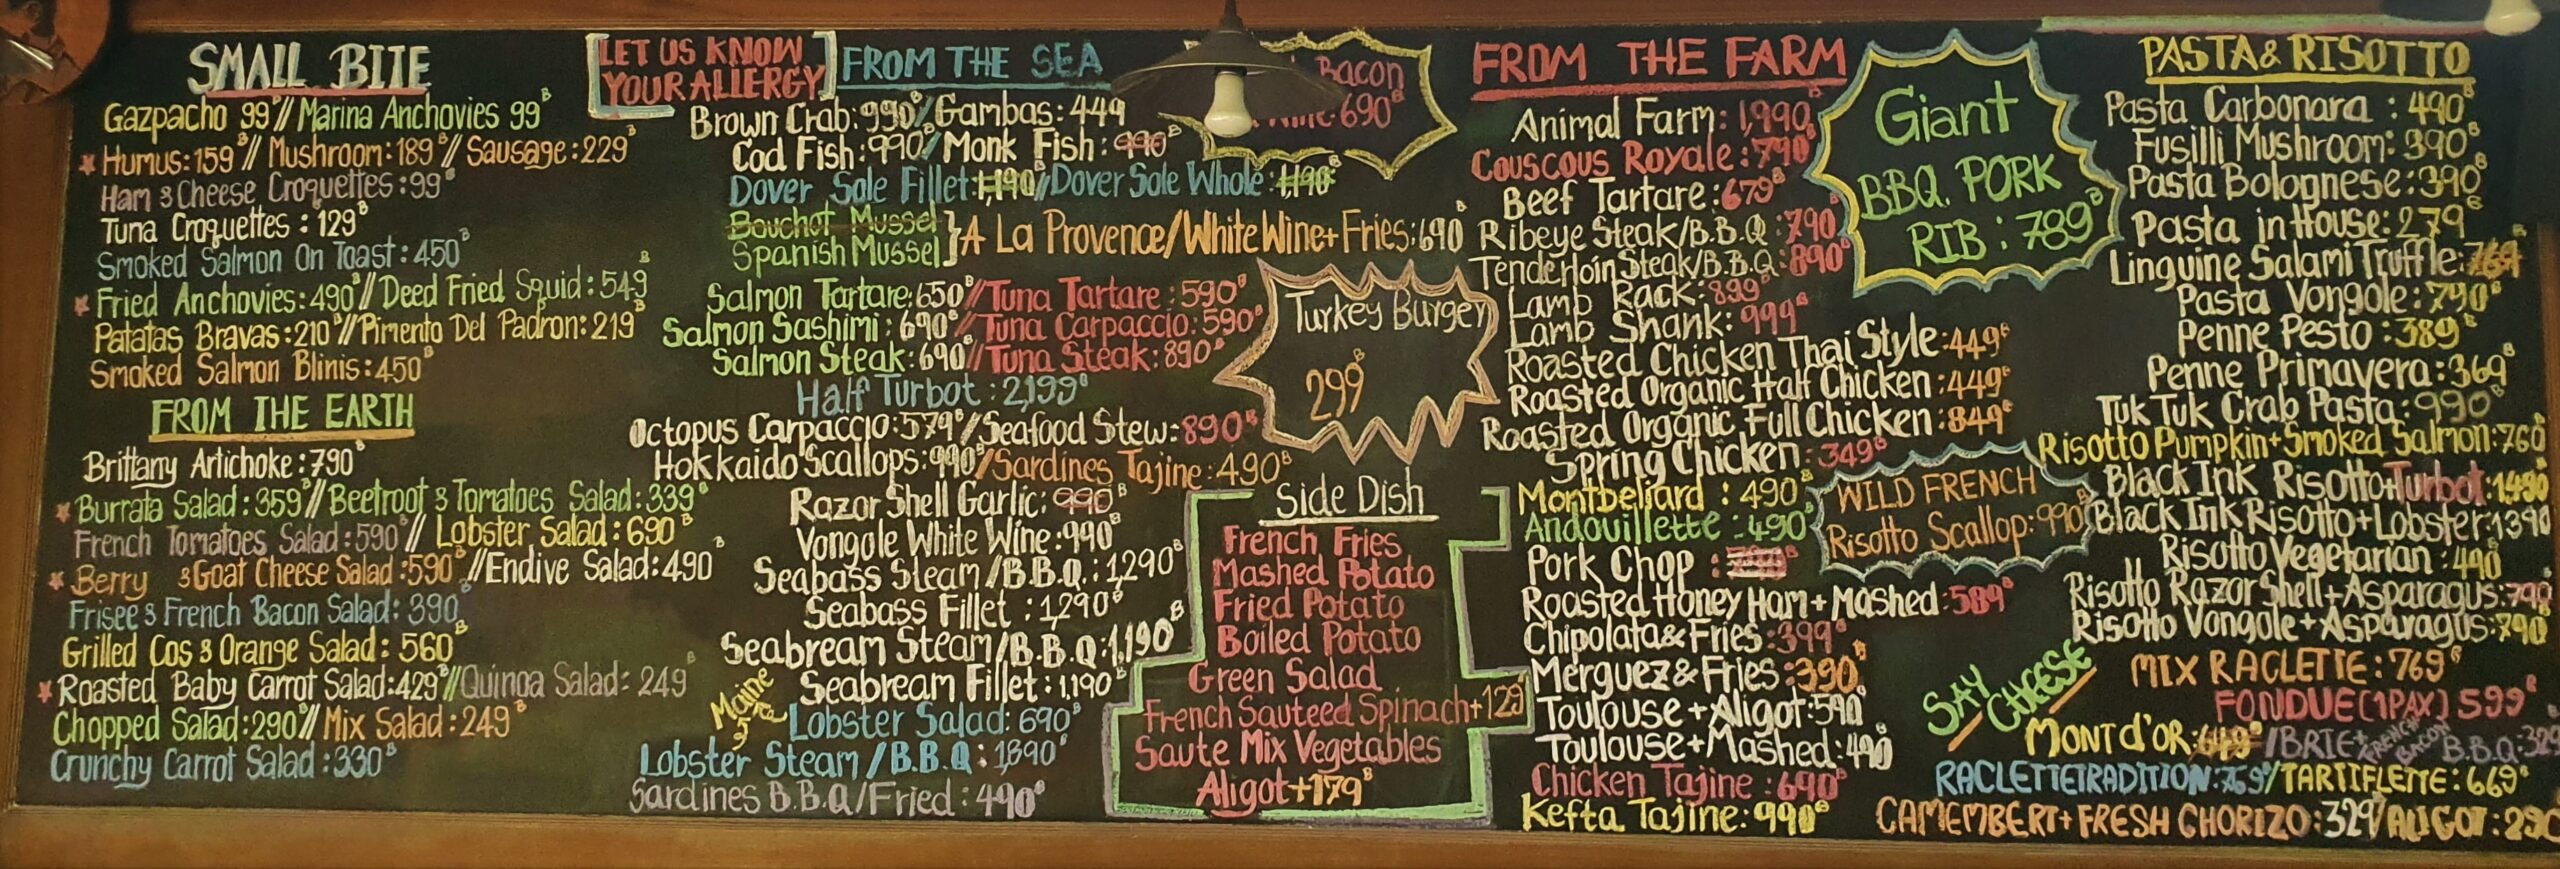 SMALL BITE
Gazpacho 99฿// Marina Anchovies 99฿
Humus: 159฿// Mushroom: 189฿// Sausage: 229฿
Ham & Cheese Croquettes: 99฿
Tuna Croquettes: 129฿
Smoked Salmon On Toast: 450฿
Fried Anchovies: 490฿// Deed Fried Squid: 549฿
Patatas Bravas: 210฿// Pimento Del Padron: 219฿
Smoked Salmon Blinis: 450฿
FROM THE EARTH
Brittany Artichoke: 790฿
Burrata Salad: 359฿// Beetroot & Tomatoes Salad: 339฿
French Tomatoes Salad: 590฿// Lobster Salad: 690฿
Berry & Goat Cheese Salad: 590฿// Endive Salad: 490฿
Frisee & French Bacon Salad: 390฿
Grilled Cos & Orange Salad: 560฿
Roasted Baby Carrot Salad: 429฿// Quinoa Salad: 249฿
Chopped Salad: 290฿// Mix Salad: 249฿
Crunchy Carrot Salad: 330฿
LET US KNOW
YOUR ALLERGY
FROM THE SEA
Brown Crab: 990฿/ Gambas: 449
Cod Fish: 990฿/ Monk Fish: 990฿
Dover Sole Fillet: 1,190฿// Dover Sole Whole: 1,190฿
Bouchot Mussel
Spanish Mussel } A La Provence/White Wine+Fries: 690฿
Salmon Tartare: 650฿// Tuna Tartare: 590฿
Salmon Sashimi: 690฿// Tuna Carpaccio: 590฿
Salmon Steak: 690฿// Tuna Steak: 890฿
Half Turbot: 2,199฿
Octopus Carpaccio: 579฿/ Seafood Stew: 890฿
Hokkaido Scallops: 990฿/ Sardines Tajine: 490฿
Razor Shell Garlic: 990฿
Vongole White Wine: 990฿
Seabass Steam/B.B.Q.: 1,290฿
Seabass Fillet: 1,290฿
Seabream Steam/B.B.Q: 1,190฿
Seabream Fillet: 1,190฿
Maine
Lobster Salad: 690฿
Lobster Steam/B.B.Q: 1,890฿
Sardines B.B.Q/Fried: 490฿
Bacon
690฿
Turkey Burger
299฿
Side Dish
French Fries
Mashed Potato
Fried Potato
Boiled Potato
Green Salad
French Sauteed Spinach+129
Saute Mix Vegetables
Aligot+179฿
FROM THE FARM
Animal Farm: 1,990฿
Couscous Royale: 790฿
Beef Tartare: 679฿
Ribeye Steak/B.B.Q: 790฿
Tenderloin Steak/B.B.Q: 890฿
Lamb Rack: 899฿
Lamb Shank: 999฿
Roasted Chicken Thai Style: 449฿
Roasted Organic Half Chicken: 449฿
Roasted Organic Full Chicken: 849฿
Spring Chicken: 349฿
Montbeliard: 490฿
Andouillette: 490฿
Pork Chop:
Roasted Honey Ham+Mashed: 589฿
Chipolata & Fries: 399฿
Merguez & Fries: 390฿
Toulouse+Aligot: 590฿
Toulouse+Mashed: 490฿
Chicken Tajine: 690฿
Kefta Tajine: 990฿
Giant
BBQ. PORK
RIB: 789฿
WILD FRENCH
Risotto Scallop: 990฿
PASTA & RISOTTO
Pasta Carbonara: 490฿
Fusilli Mushroom: 390฿
Pasta Bolognese: 390฿
Pasta in House: 279฿
Linguine Salami Truffle: 769
Pasta Vongole: 790฿
Penne Pesto: 389฿
Penne Primavera: 369฿
Tuk Tuk Crab Pasta: 990฿
Risotto Pumpkin+Smoked Salmon: 760฿
Black Ink Risotto+Turbot: 1,490
Black Ink Risotto+Lobster: 1390
Risotto Vegetarian: 490฿
Risotto Razor Shell+Asparagus: 790
Risotto Vongole+Asparagus: 790฿
SAY CHEESE
MIX RACLETTE: 769฿
FONDUE (1PAX) 599฿
MONT d'OR: 649฿/ BRIE+ FRENCH BACON B.B.Q: 329
RACLETTE TRADITION: 769฿/ TARTIFLETTE: 669฿
CAMEMBERT+FRESH CHORIZO: 329/ ALIGOT: 290